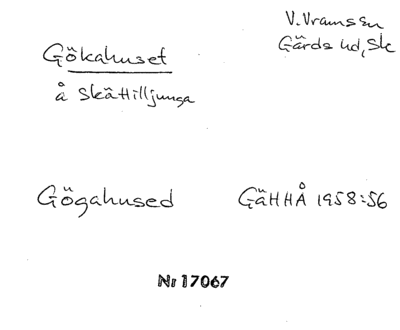 V. Vramssn
Gärds hd, Sk
Gökahuset
å Skättilljunga
Gögahused GäHHÅ 1958:56
Nr 17067